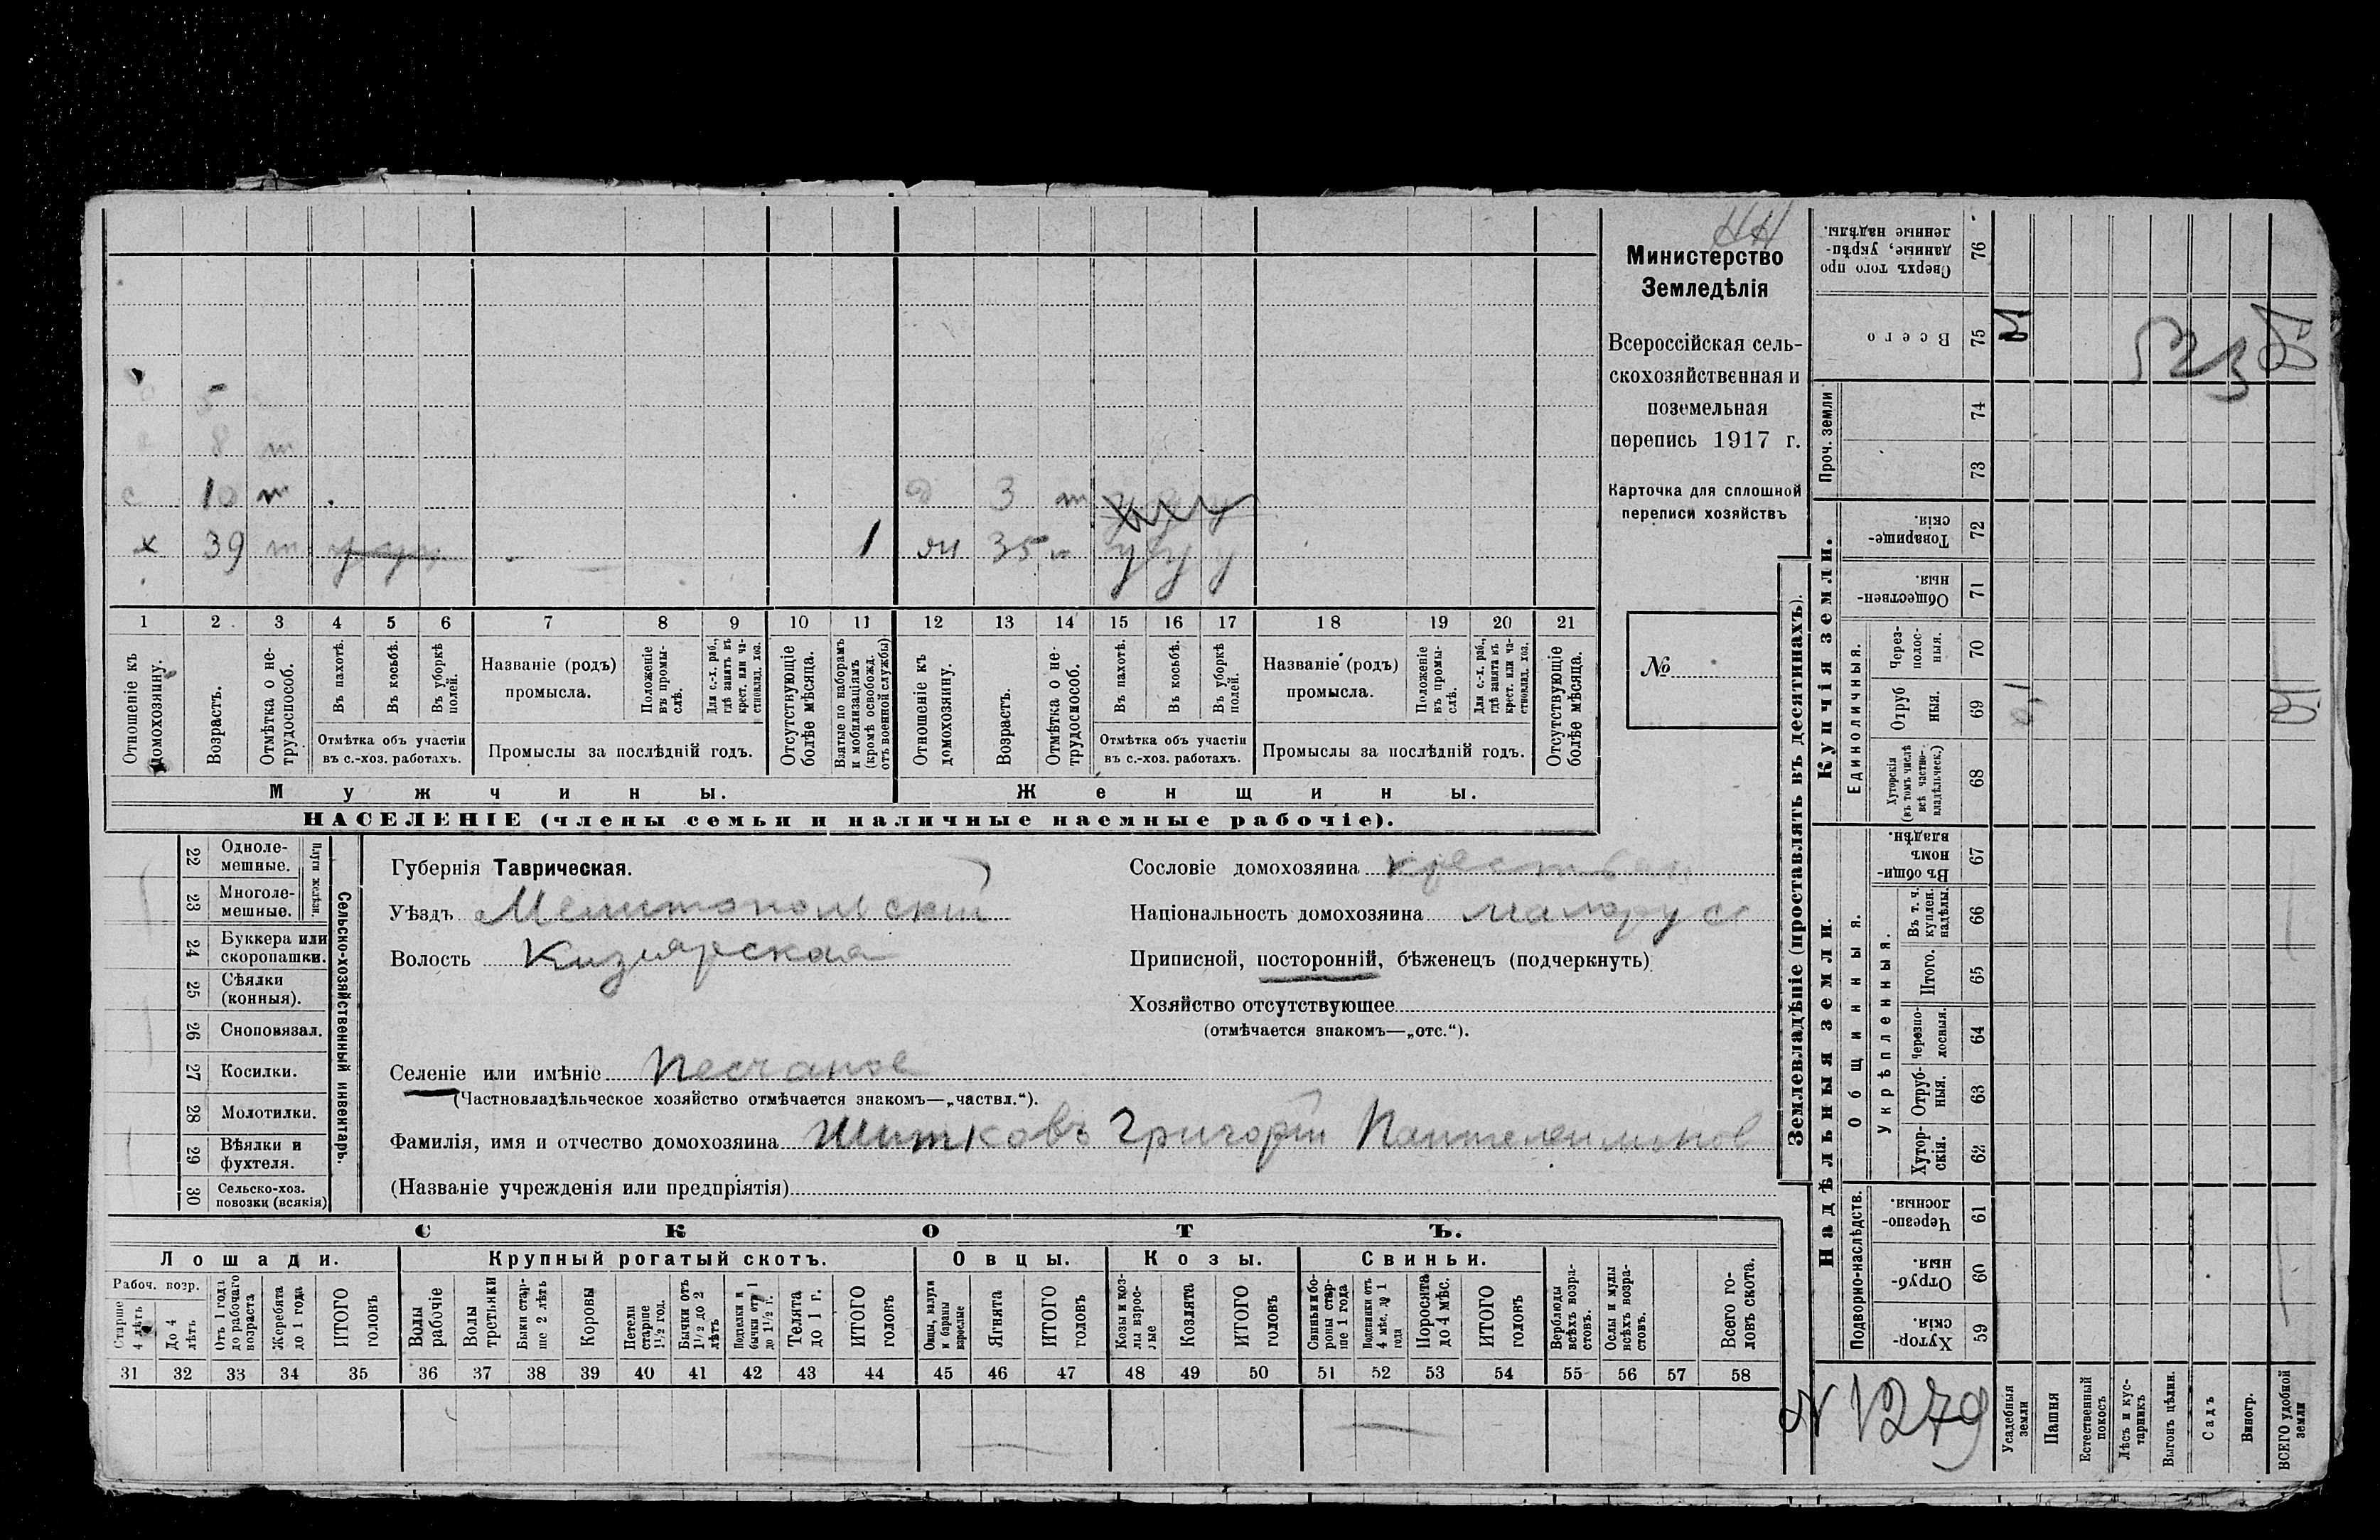 НН
Министерство
Земледѣлія
Всероссійская сель-
скохозяйственная и
поземельная
перепись 1917 г.
Карточка для сплошной
переписи хозяйствъ
№
5
8 т
с 10 т д 3 т
х 39 т 1 жн 35 у у у
1 2 3 4 5 6 7 8 9 10 11 12 13 14 15 16 17 18 19 20 21
Отношеніе къ домохозяину.
Возрастъ.
Отмѣтка о не-трудоспособ.
Въ пахотѣ.
Въ косьбѣ.
Въ уборкѣ полей.
Отмѣтка объ участіи
въ с.-хоз. работахъ.
Названіе (родъ)
промысла.
Положеніе въ промы-слѣ.
Для с.-х. раб., гдѣ занятъ въ крест. или ча-стновлад. хоз.
Промыслы за послѣдній годъ.
Отсутствующіе болѣе мѣсяца.
Взятые по наборамъ и мобилизаціямъ (кромѣ освобожд. отъ военной службы)
Отношеніе къ домохозяину.
Возрастъ.
Отмѣтка о не-трудоспособ.
Въ пахотѣ.
Въ косьбѣ.
Въ уборкѣ полей.
Отмѣтка объ участіи
въ с.-хоз. работахъ.
Названіе (родъ)
промысла.
Положеніе въ промы-слѣ.
Для с.-х. раб., гдѣ занята въ крест. или ча-стновлад. хоз.
Промыслы за послѣдній годъ.
Отсутствующіе болѣе мѣсяца.
Мужчины. Женщины.
НАСЕЛЕНІЕ (члены семьи и наличные наемные рабочіе).
22 Одноле-мешные.
23 Многоле-мешные.
Плуги желѣзн.
24 Буккера или скоропашки.
25 Сѣялки (конныя).
26 Сноповязал.
27 Косилки.
28 Молотилки.
29 Вѣялки и фухтеля.
30 Сельско-хоз. повозки (всякія)
Сельско-хозяйственный инвентарь.
Губернія Таврическая.
Уѣздъ Мелитопольскій
Волость Кизіярская
Сословіе домохозяина крестьян
Національность домохозяина малорус
Приписной, посторонній, бѣженецъ (подчеркнуть)
Хозяйство отсутствующее
(отмѣчается знакомъ—„отс.“).
Селеніе или имѣніе Песчаное
(Частновладѣльческое хозяйство отмѣчается знакомъ—„частвл.“).
Фамилія, имя и отчество домохозяина Шитковъ Григорій Пантелеимонов
(Названіе учрежденія или предпріятія)
СКОТЪ.
Лошади. Крупный рогатый скотъ. Овцы. Козы. Свиньи.
Рабоч. возр.
Старше 4 лѣтъ
До 4 лѣтъ
Отъ 1 года до рабочаго возраста
Жеребята до 1 года
ИТОГО головъ
Волы рабочіе
Волы третьяки
Быки стар-ше 2 лѣтъ
Коровы
Нетели старше 1½ год.
Бычки отъ 1½ до 2 лѣтъ
Подтелки и бычки отъ 1 до 1½ г.
Телята до 1 г.
ИТОГО головъ
Овцы, валухи и бараны взрослые
Ягнята
ИТОГО головъ
Козы и коз-лы взрос-лые
Козлята
ИТОГО головъ
Свиньи и бо-ровы стар-ше 1 года
Подсвинки отъ 4 мѣс. до 1 года
Поросята до 4 мѣс.
ИТОГО головъ
Верблюды всѣхъ возра-стовъ.
Ослы и мулы всѣхъ возра-стовъ.
Всего го-ловъ скота.
31 32 33 34 35 36 37 38 39 40 41 42 43 44 45 46 47 48 49 50 51 52 53 54 55 56 57 58
Землевладѣніе (проставлять въ десятинахъ).
Сверхъ того про данные, укрѣп-ленные надѣлы. 76
Всего 75
Проч. земли 74
73
Купчія земли.
Товарище-скія. 72
Обществен-ныя. 71
Единоличныя.
Через-полос-ныя. 70
Отруб ныя. 69
Хуторскія (въ томъ числѣ всѣ частно-владѣльческ.) 68
Надѣльныя земли.
Общинныя.
Въ общи-номъ владѣн. 67
Укрѣпленныя.
Въ т. ч. куплен. надѣлы. 66
Итого. 65
Черезпо-лосныя. 64
Отруб-ныя. 63
Хутор-скія. 62
Подворно-наслѣдств.
Черезпо-лосныя. 61
Отруб-ныя. 60
Хутор-скія. 59
523
N 1279
Усадебныя земли
Пашня
Естественный покосъ
Лѣсъ и кус-тарникъ
Выгонъ цѣлин.
Садъ
Виногр.
ВСЕГО удобной земли